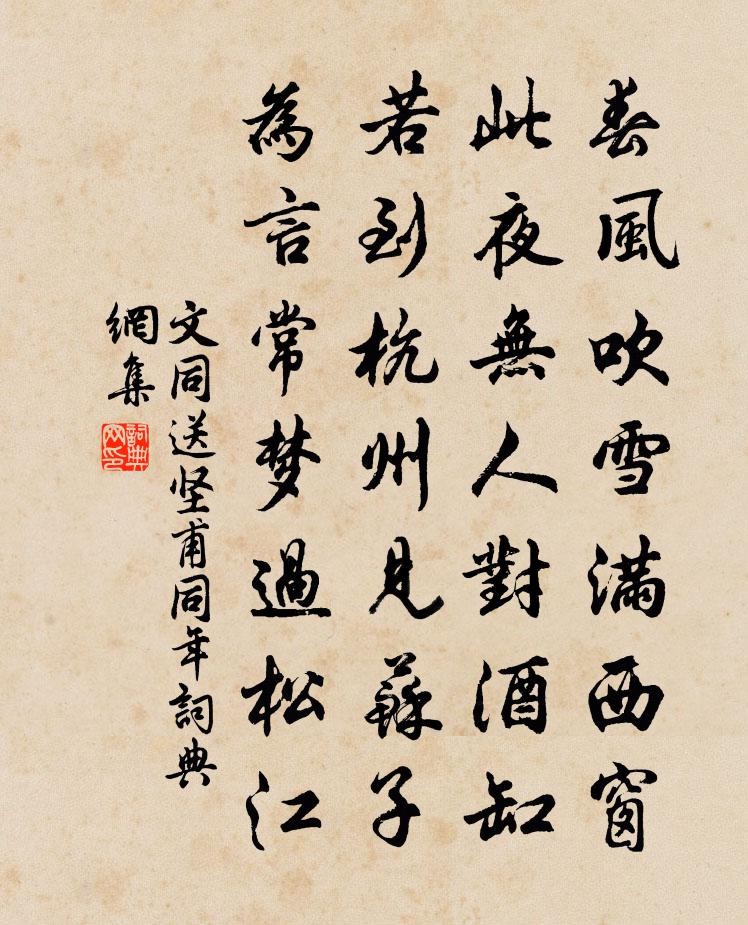 春風吹雪滿西窗
此夜無人對酒缸
若到杭州見蘇子
為言常梦過松江
文同送坚甫同年詞典
網集
詞典
网印